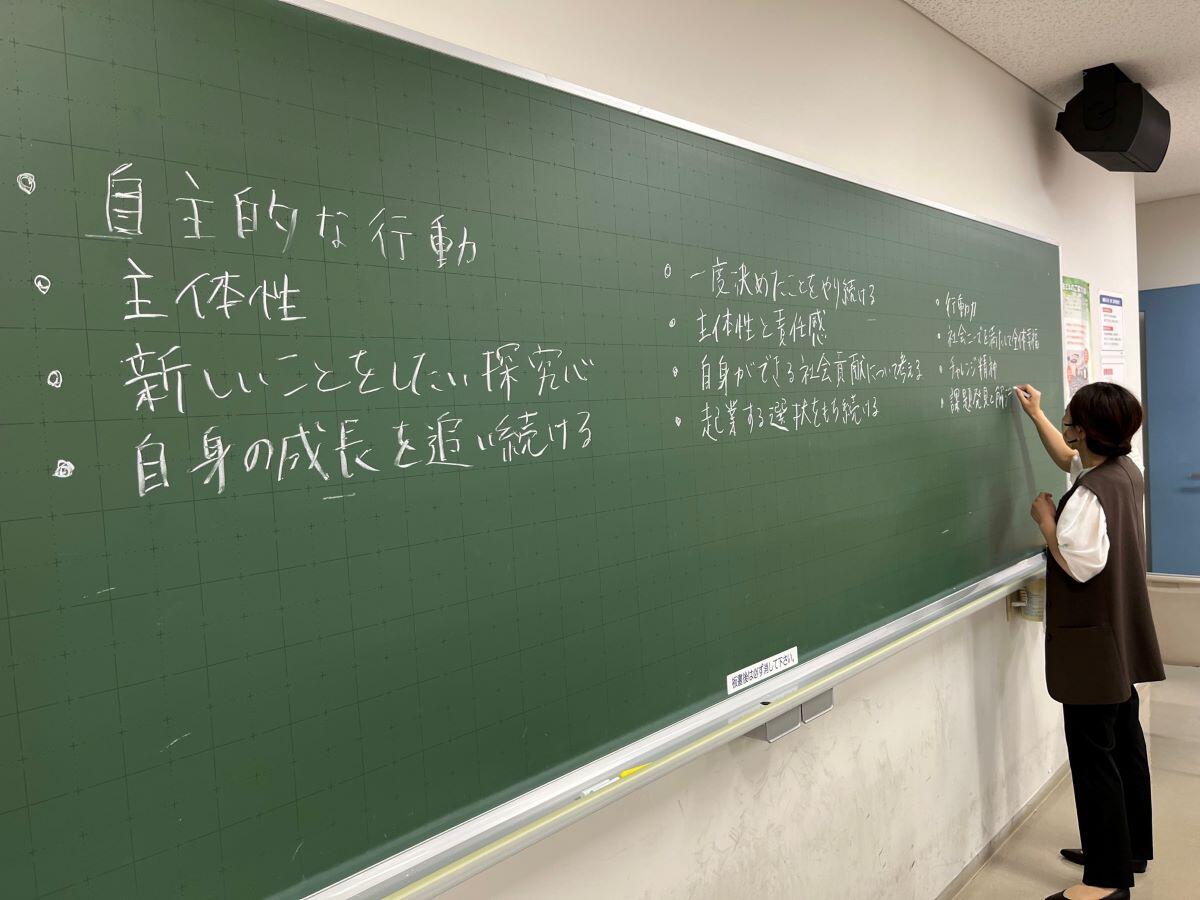 自主的な行動
主体性
新しいことをしたい探究心
自身の成長を追い続ける
一度決めたことをやり続ける
主体性と責任感
自身ができる社会貢献について考える
起業する選択をもち続ける
行動力
社会ニーズを満たして全体幸福
チャレンジ精神
課題発見と解
板書後は必ず消して下さい。